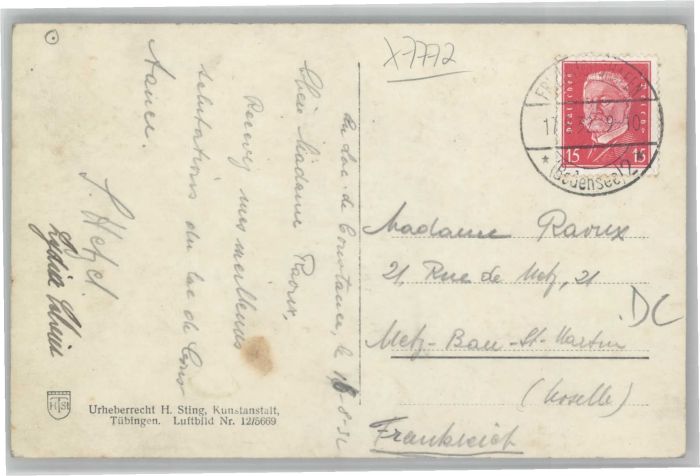 X-7772
Au Lac de Constance, le 16-8-31
Chère Madame Raoux,
Recevez mes meilleures
salutations du lac de Cons
tance.
S. Hetzel.
Lydia
Deutsches Reich
15 15
(Bodensee) 2
Madame Raoux
21, Rue de Metz, 21
Metz-Ban-St-Martin
(Moselle)
Frankreich
DC
HSt
Urheberrecht H. Sting, Kunstanstalt,
Tübingen. Luftbild Nr. 12/5669